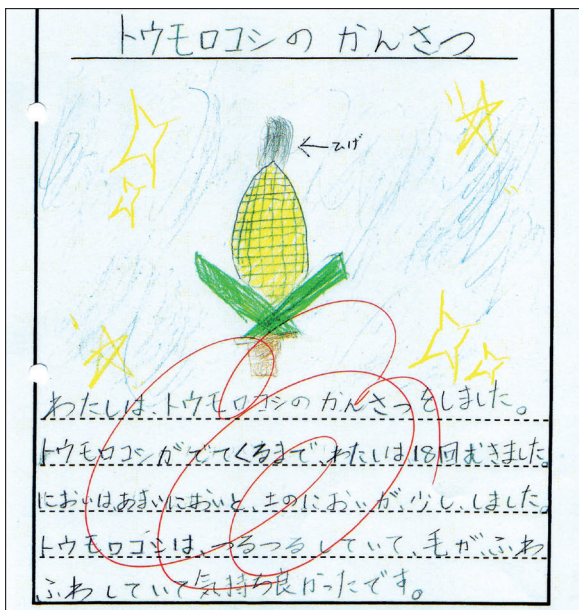 トウモロコシの かんさつ
←ひげ
わたしは、トウモロコシの かんさつをしました。
トウモロコシがでてくるまで、わたしは18回むきました。
においは、あまいにおいと、土のにおいが、少し、しました。
トウモロコシは、つるつるしていて、毛が、ふわ
ふわしていて気持ち良かったです。